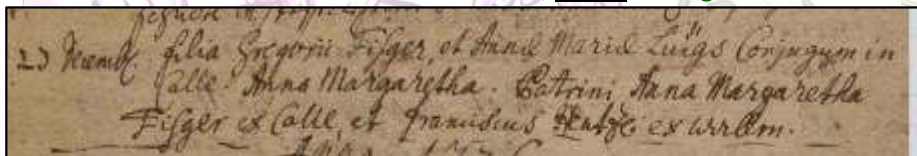 23 Xemb. filia Gregorii Fisger, et Annæ Mariæ Luigs Conjugum in
Calle. Anna Margaretha. Patrini Anna Margaretha
Fisger ex Calle, et Franciscus ex